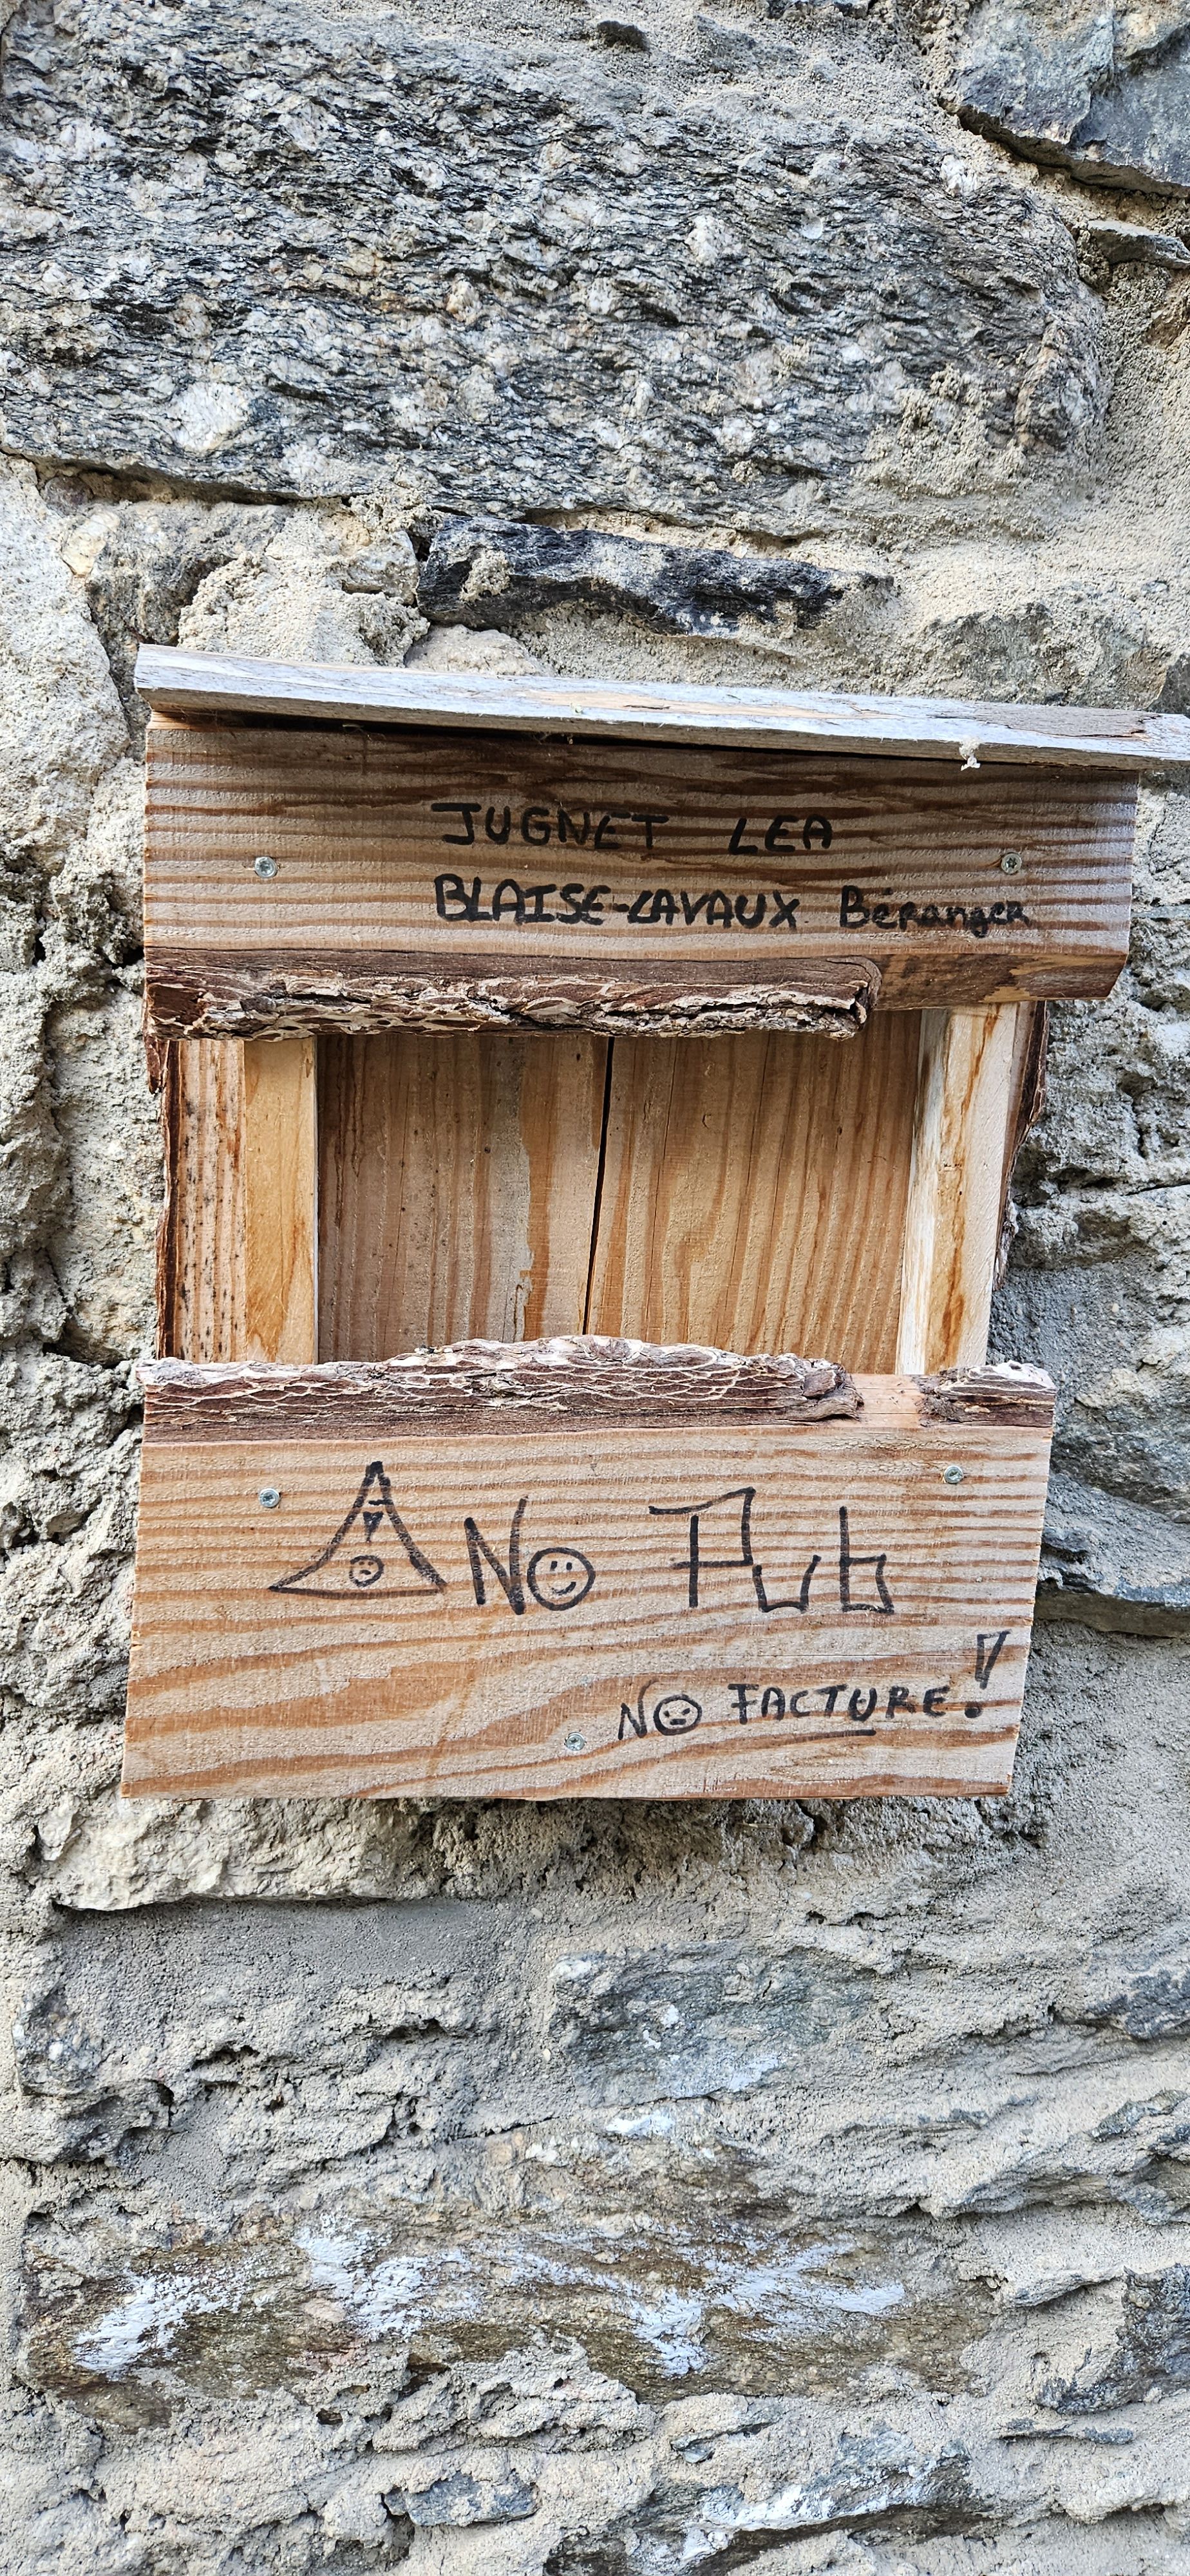 JUGNET LEA
BLAISE-LAVAUX Béranger
! NO Pub
NO FACTURE !